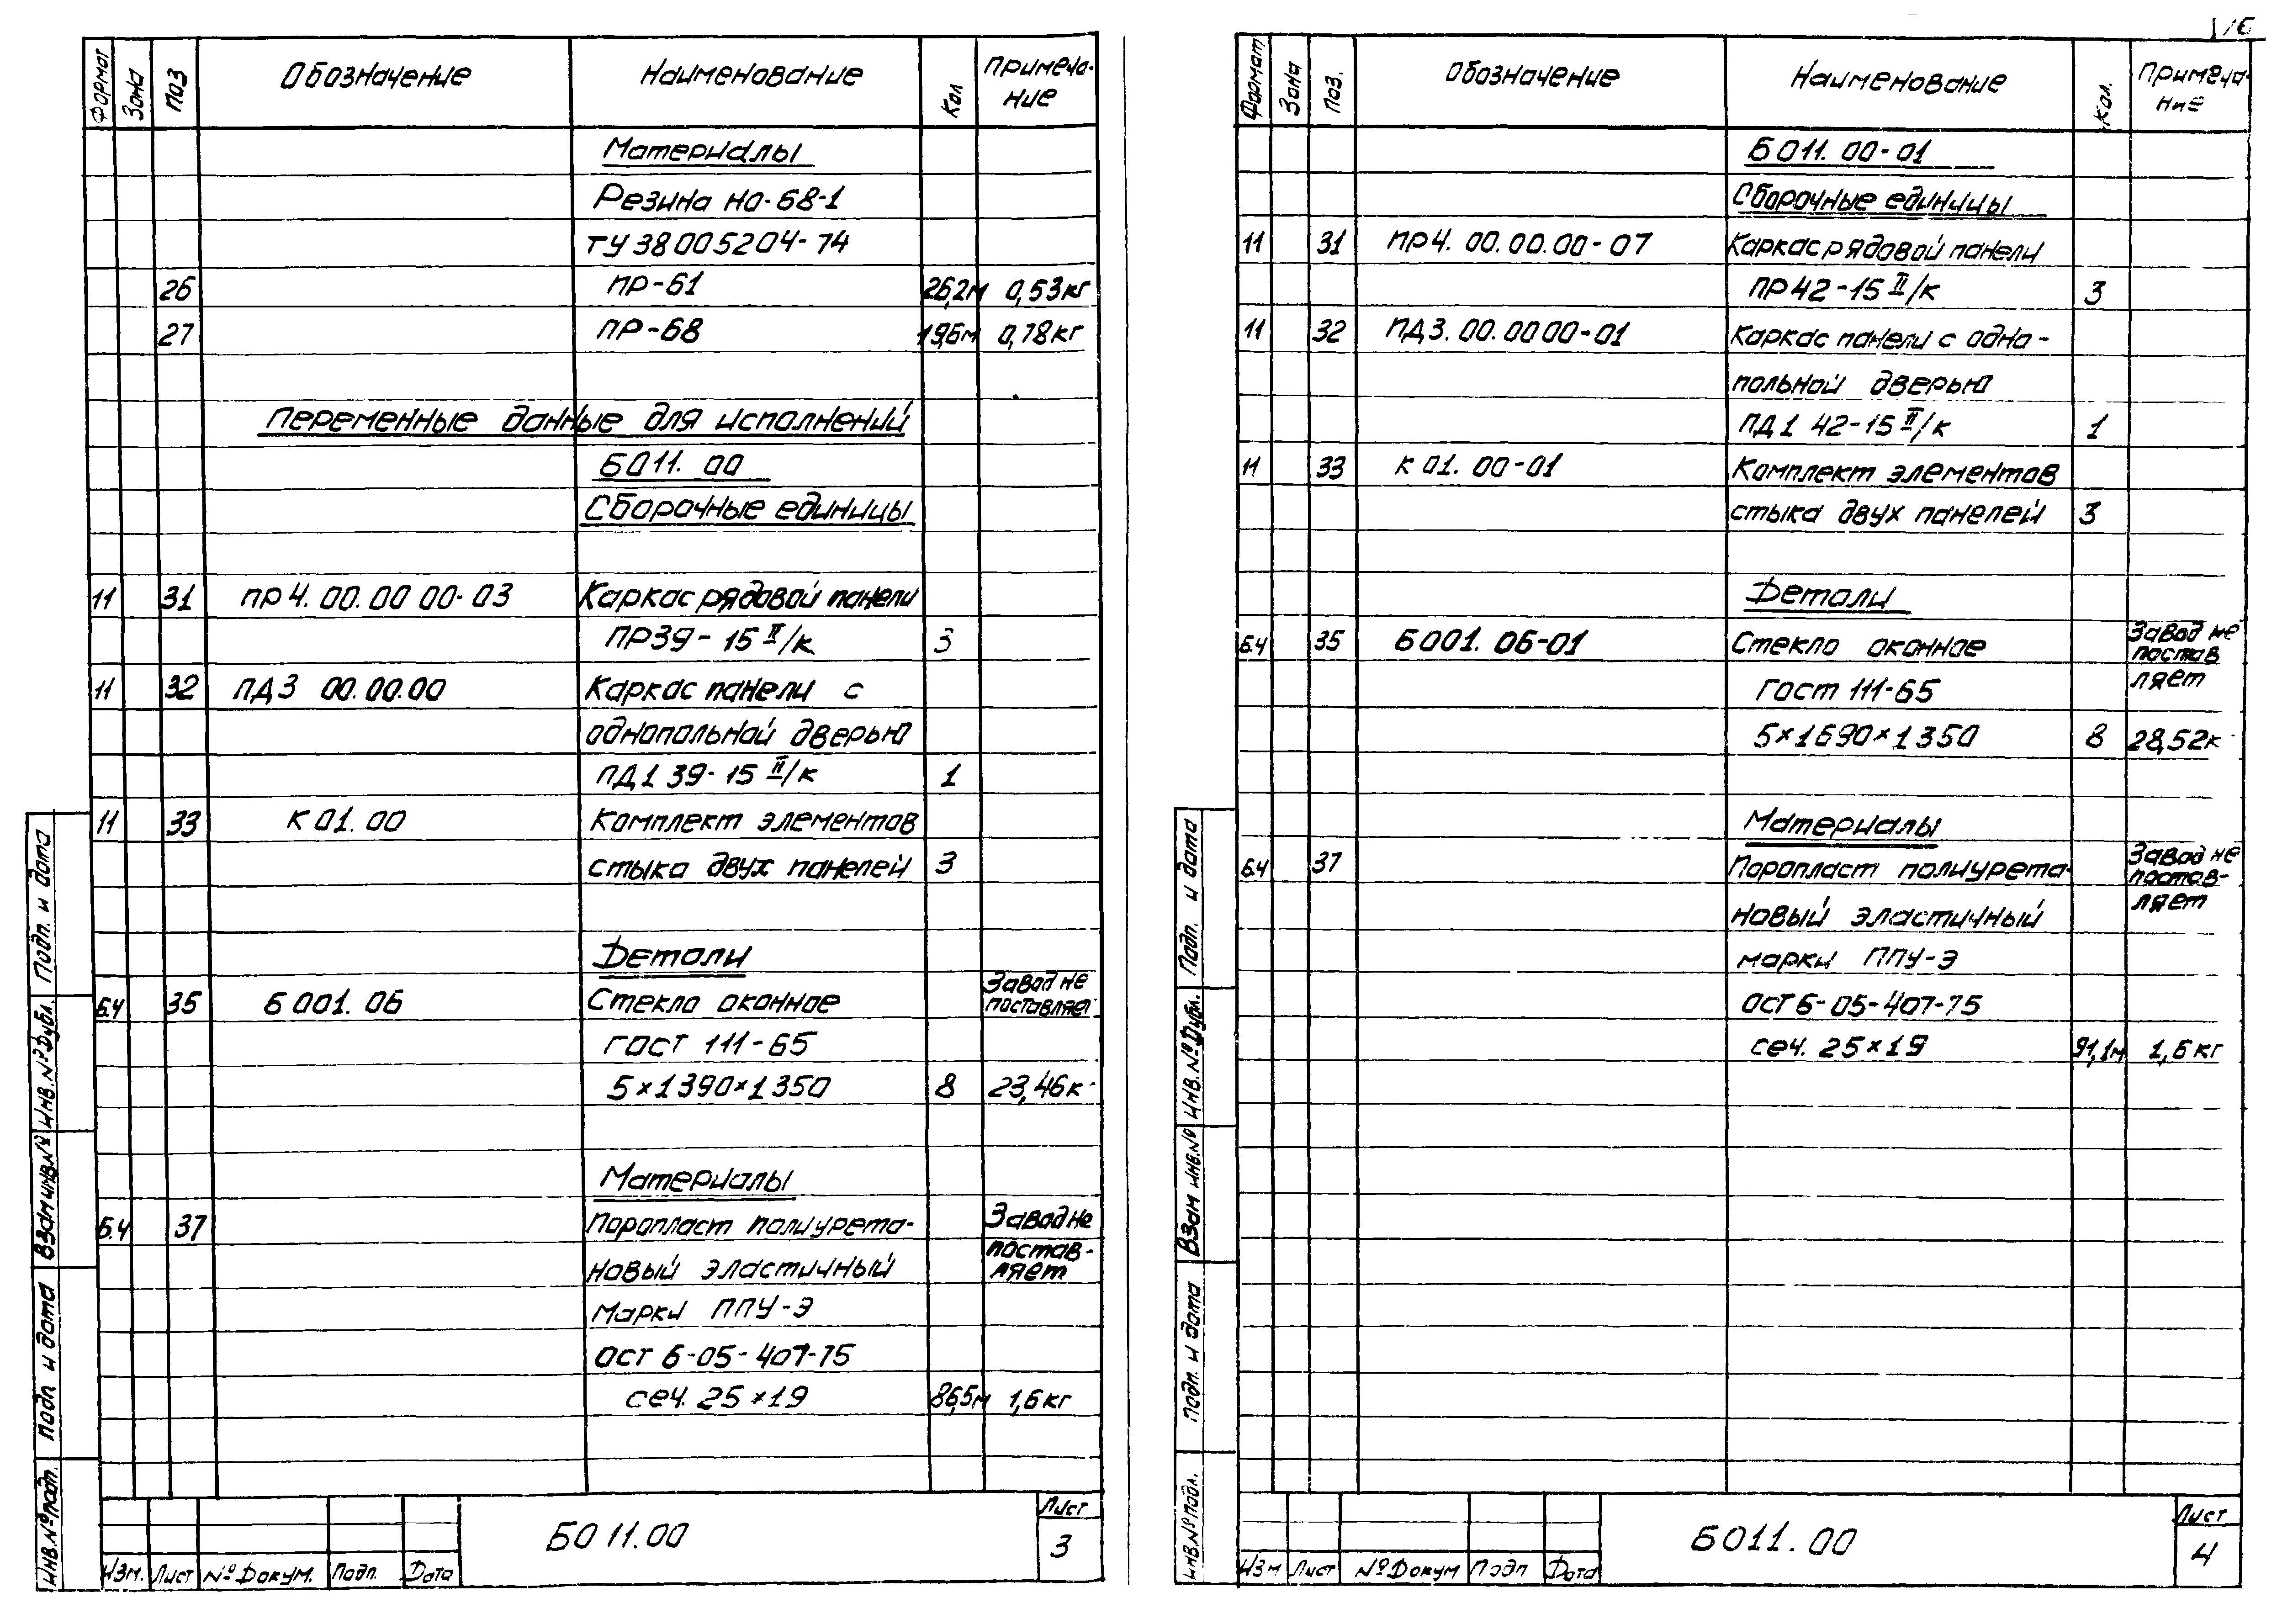 Формат Зона Поз Обозначение Наименование Кол Примеча-
ние
Материалы
Резина НО-68-1
ТУ 38 005204-74
26 ПР-61 26,2м 0,53кг
27 ПР-68 19,6м 0,78кг
Переменные данные для исполнений
Б011.00
Сборочные единицы
11 31 ПР4.00.00 00-03 Каркас рядовой панели
ПР39-15 II/К 3
11 32 ПД3 00.00.00 Каркас панели с
однопольной дверью
ПД1 39-15 II/К 1
11 33 К 01.00 Комплект элементов
стыка двух панелей 3
Детали
Б.Ч 35 Б001.06 Стекло оконное Завод не
поставляет
ГОСТ 111-65
5×1390×1350 8 23,46к
Материалы
Б.Ч 37 Поропласт полиурета- Завод не
новый эластичный постав-
ляет
марки ППУ-Э
ОСТ 6-05-407-75
сеч. 25×19 86,5м 1,6кг
Инв.№подл. Подп и дата Взам инв.№ Инв.№дубл. Подп. и дата
Изм. Лист №Докум. Подп. Дата
Б011.00
Лист
3
Формат Зона Поз. Обозначение Наименование Кол. Примеча-
ние
Б011.00-01
Сборочные единицы
11 31 ПР4.00.00.00-07 Каркас рядовой панели
ПР42-15 II/К 3
11 32 ПД3.00.0000-01 Каркас панели с одно-
польной дверью
ПД1 42-15 II/К 1
11 33 К 01.00-01 Комплект элементов
стыка двух панелей 3
Детали
Б.Ч 35 Б001.06-01 Стекло оконное Завод не
постав
ляет
ГОСТ 111-65
5×1690×1350 8 28,52к
Материалы
Б.Ч 37 Поропласт полиурета- Завод не
постав-
ляет
новый эластичный
марки ППУ-Э
ОСТ 6-05-407-75
сеч. 25×19 91,1м 1,6кг
Инв.№подл. Подп. и дата Взам инв.№ Инв.№дубл. Подп. и дата
Изм Лист №Докум Подп Дата
Б011.00
Лист
4